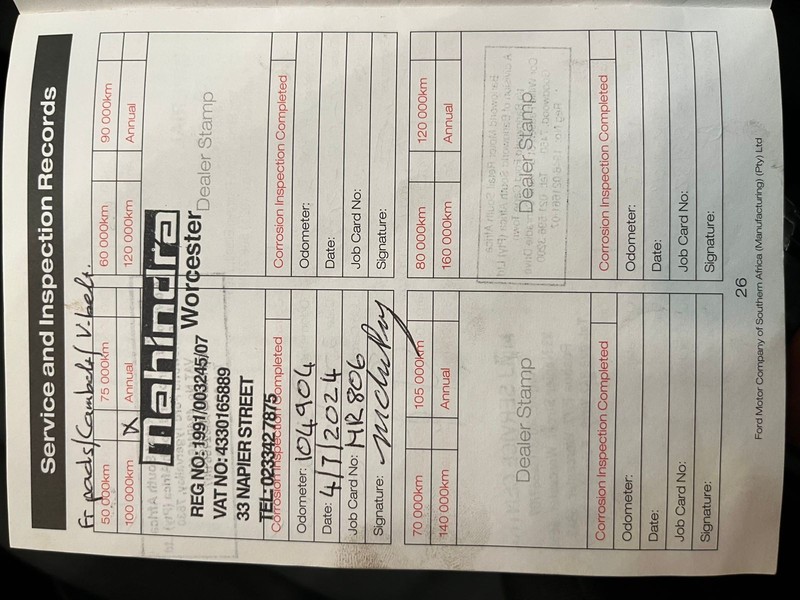 Service and Inspection Records
Fr pads/Cambelt/V-belt.
50 000km 75 000km
100 000km X Annual
mahindra
Worcester
REG NO: 1991/003245/07
VAT NO: 4330165889
33 NAPIER STREET
TEL: 0233427875
Corrosion Inspection Completed
Odometer: 104904
Date: 4/7/2024
Job Card No: MR806
Signature:
60 000km 90 000km
120 000km Annual
Dealer Stamp
Corrosion Inspection Completed
Odometer:
Date:
Job Card No:
Signature:
70 000km 105 000km
140 000km Annual
Dealer Stamp
Corrosion Inspection Completed
Odometer:
Date:
Job Card No:
Signature:
80 000km 120 000km
160 000km Annual
Dealer Stamp
Corrosion Inspection Completed
Odometer:
Date:
Job Card No:
Signature:
26
Ford Motor Company of Southern Africa (Manufacturing) (Pty) Ltd